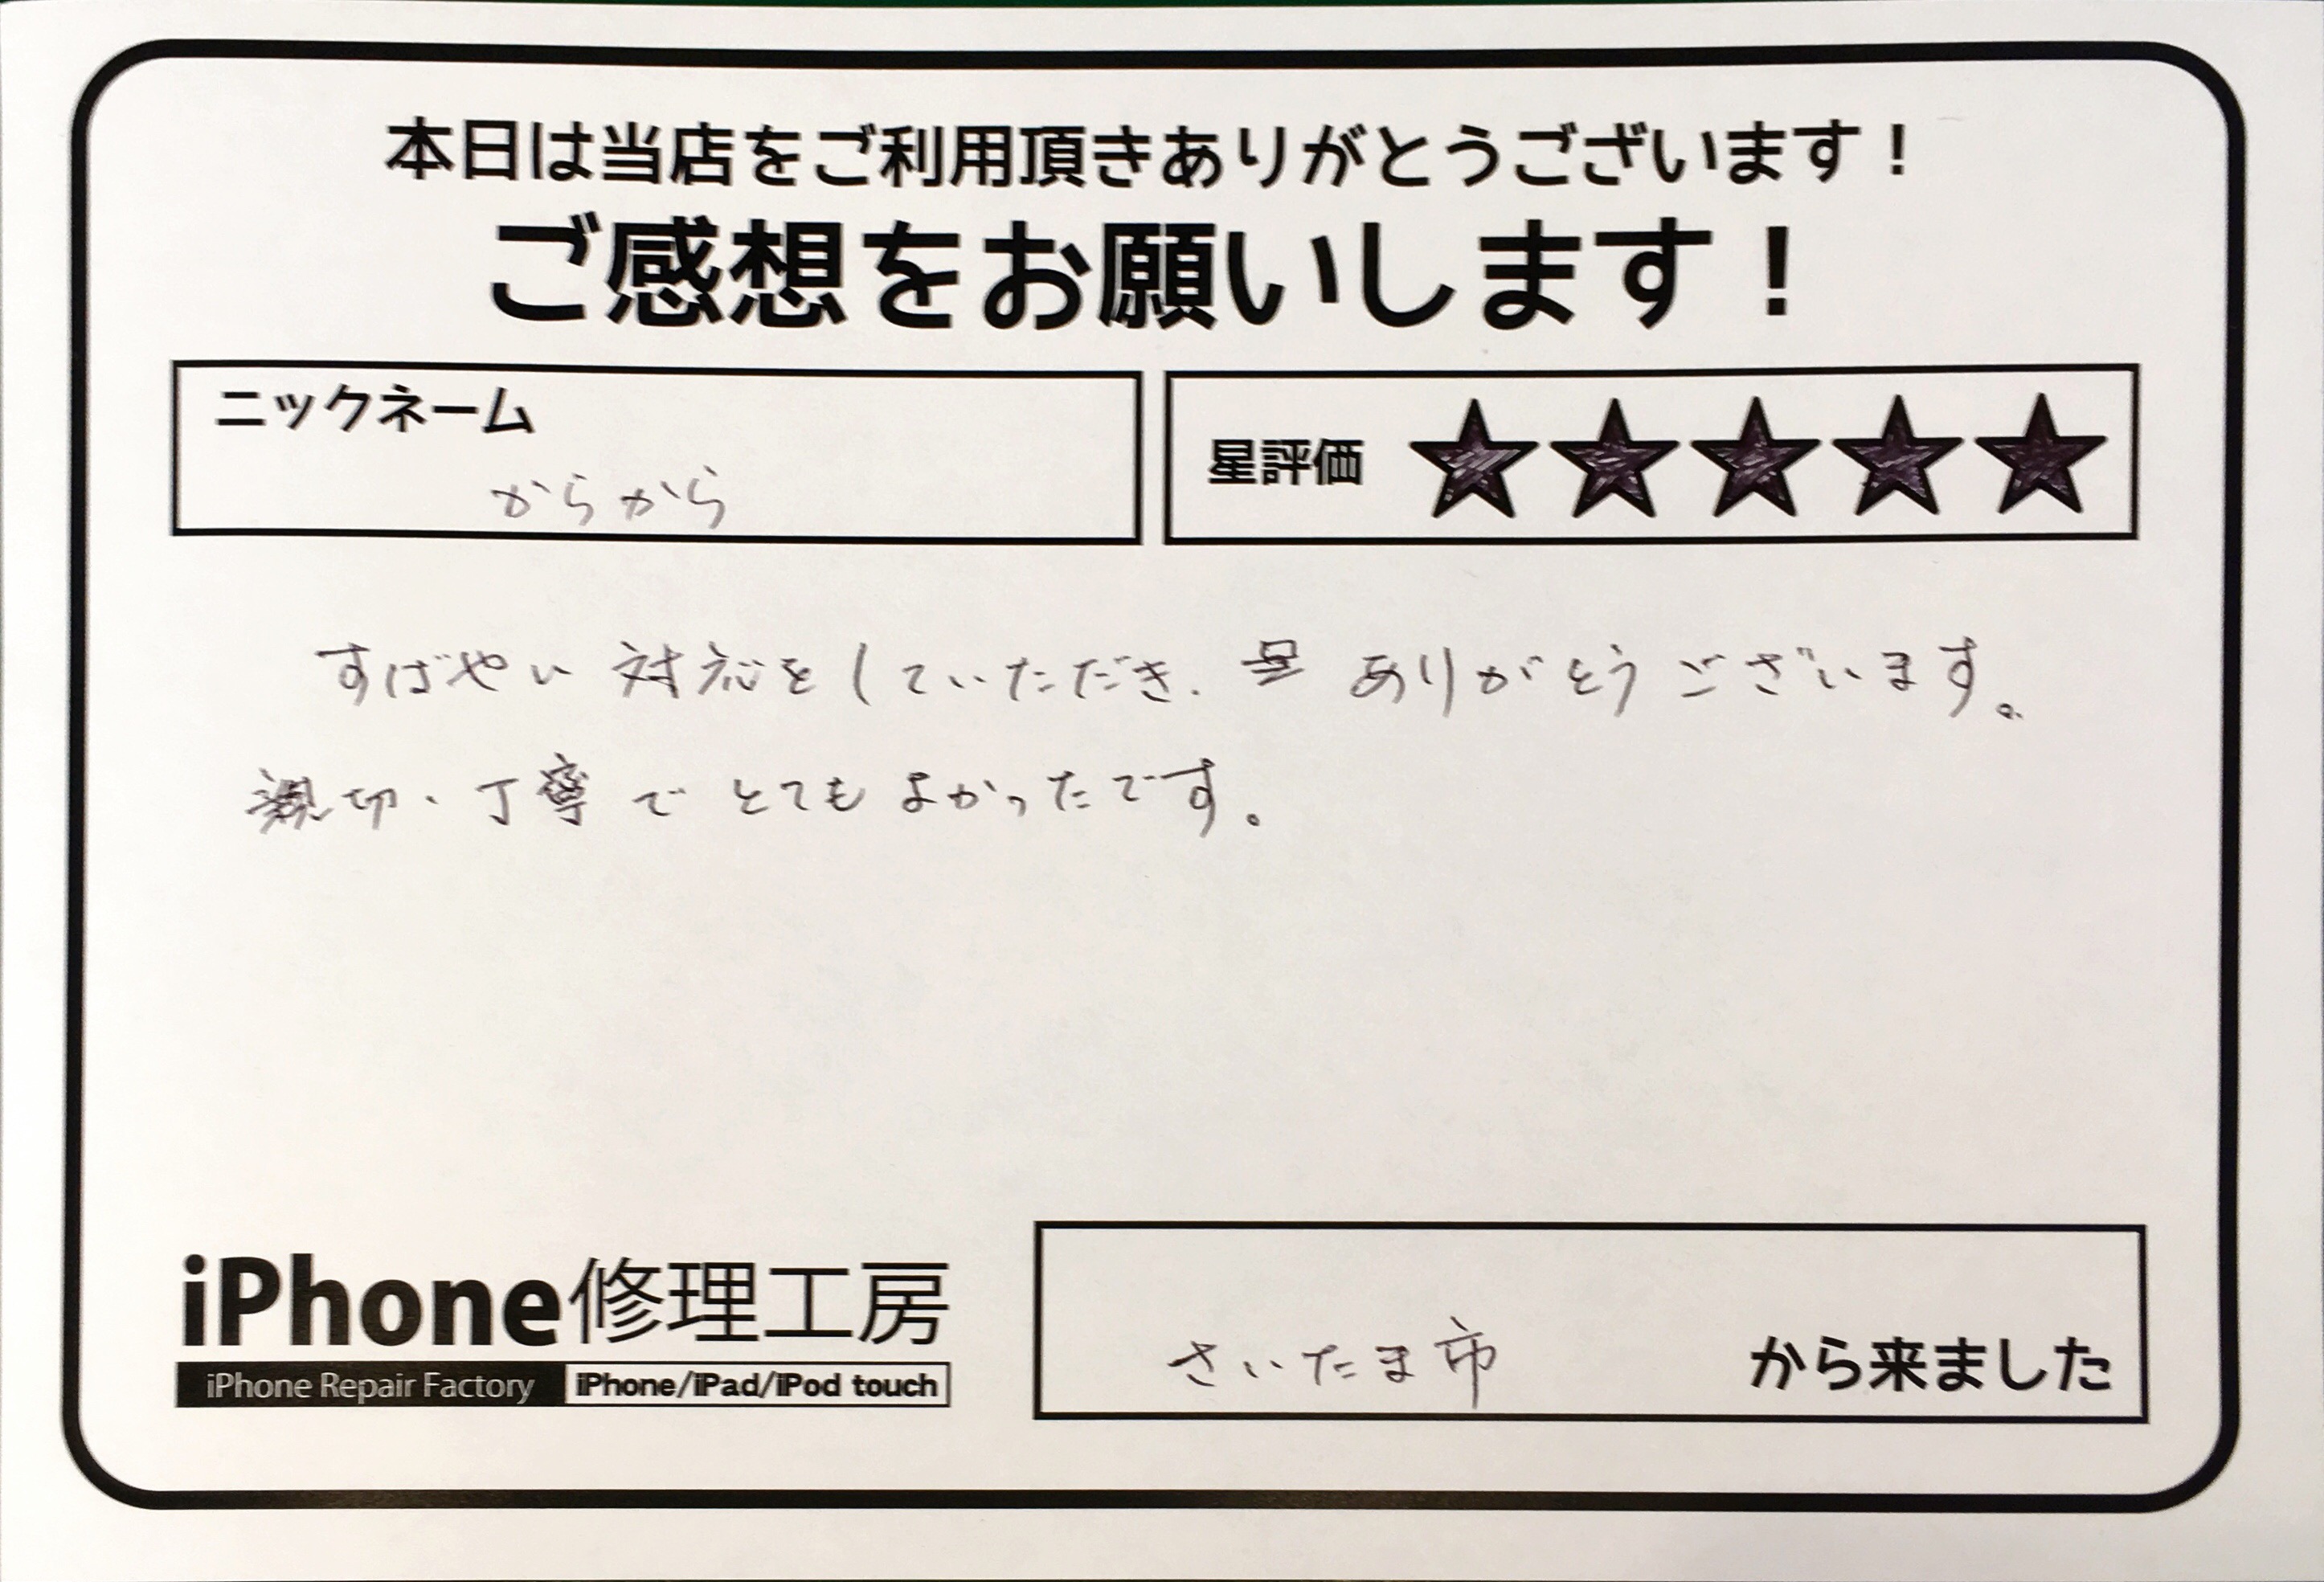 本日は当店をご利用頂きありがとうございます！
ご感想をお願いします！
ニックネーム
からから
星評価 ★★★★★
すばやい対応をしていただき、ありがとうございます。
親切、丁寧でとてもよかったです。
iPhone修理工房
iPhone Repair Factory iPhone/iPad/iPod touch
さいたま市 から来ました